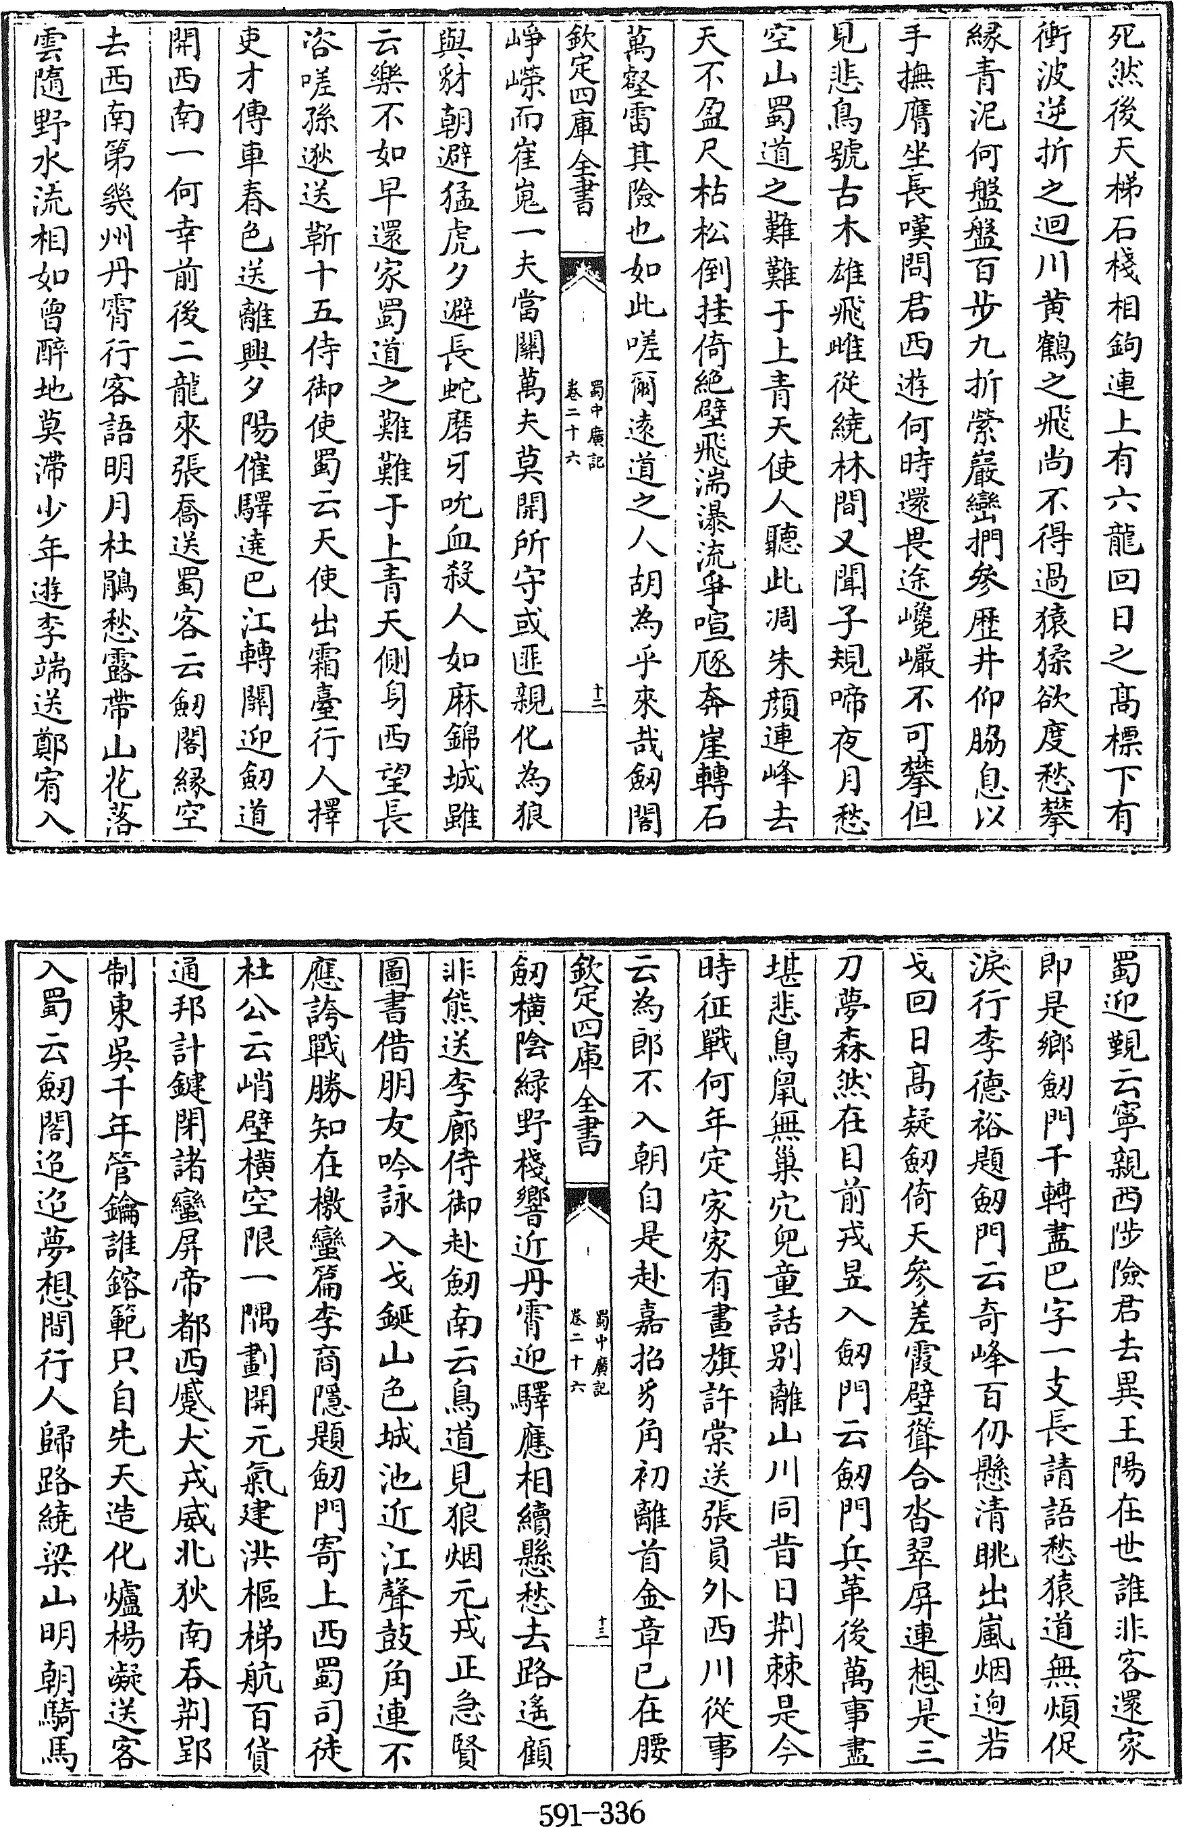 死然後天梯石棧相鉤連上有六龍回日之高標下有
衝波逆折之迴川黃鶴之飛尚不得過猿猱欲度愁攀
緣青泥何盤盤百步九折縈巖巒捫參歷井仰脇息以
手撫膺坐長嘆問君西遊何時還畏途巉巖不可攀但
見悲鳥號古木雄飛雌從繞林間又聞子規啼夜月愁
空山蜀道之難難于上青天使人聽此凋朱顏連峰去
天不盈尺枯松倒挂倚絶壁飛湍瀑流爭喧豗奔崖轉石
萬壑雷其險也如此嗟爾遠道之人胡為乎來哉劒閣
欽定四庫全書
蜀中廣記
卷二十六
十二
崢嶸而崔嵬一夫當關萬夫莫開所守或匪親化為狼
與豺朝避猛虎夕避長蛇磨牙吮血殺人如麻錦城雖
云樂不如早還家蜀道之難難于上青天側身西望長
咨嗟孫逖送靳十五侍御使蜀云天使出霜臺行人擇
吏才傳車春色送離興夕陽催驛遶巴江轉關迎劒道
開西南一何幸前後二龍來張喬送蜀客云劒閣緣空
去西南第幾州丹霄行客語明月杜鵑愁露帶山花落
雲隨野水流相如曾醉地莫滯少年遊李端送鄭宥入
蜀迎覲云寧親西陟險君去異王陽在世誰非客還家
即是鄉劒門千轉盡巴字一支長請語愁猿道無煩促
淚行李德裕題劒門云奇峰百仞懸清眺出嵐烟迥若
戈回日高疑劒倚天參差霞壁聳合沓翠屏連想是三
刀夢森然在目前戎昱入劒門云劒門兵革後萬事盡
堪悲鳥䑕無巢穴兒童話别離山川同昔日荆棘是今
時征戰何年定家家有畫旗許棠送張員外西川從事
云為郎不入朝自是赴嘉招豸角初離首金章已在腰
欽定四庫全書
蜀中廣記
卷二十六
十三
劒橫陰緑野棧響近丹霄迎驛應相續懸愁去路遙顧
非熊送李廊侍御赴劒南云鳥道見狼烟元戎正急賢
圖書借朋友吟詠入戈鋋山色城池近江聲鼓角連不
應誇戰勝知在檄蠻篇李商隱題劒門寄上西蜀司徒
杜公云峭壁橫空限一隅劃開元氣建洪樞梯航百貨
通邦計鍵閉諸蠻屏帝都西蹙犬戎威北狄南吞荆郢
制東吳千年管鑰誰鎔範只自先天造化爐楊凝送客
入蜀云劒閣迢迢夢想間行人歸路繞梁山明朝騎馬
591-336